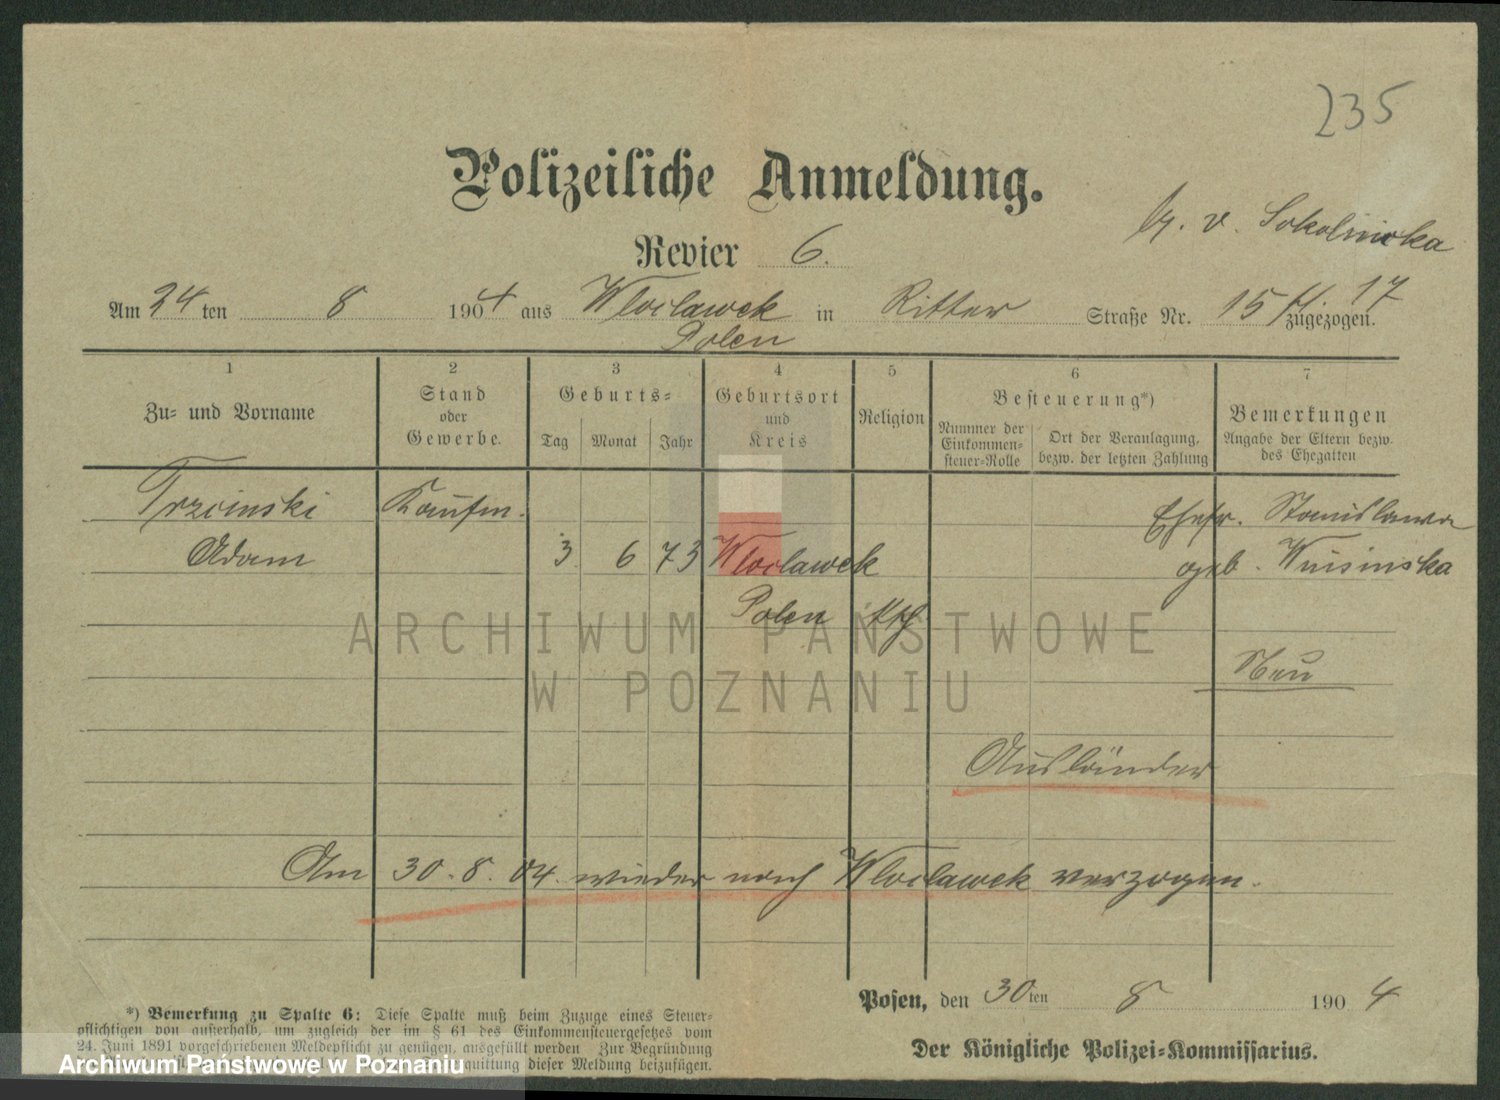 235
Polizeiliche Anmeldung.
v. Sokolnicka
Revier 6.
Am 24ten 8 1904 aus Wloclawek in Ritter Straße Nr. 15 II. 17 zugezogen.
Polen
1 2 3 4 5 6 7
Zu- und Vorname
Stand
oder
Gewerbe.
Geburts-
Tag Monat Jahr
Geburtsort
und
Kreis
Religion
Besteuerung*)
Nummer der
Einkommen-
steuer-Rolle
Ort der Veranlagung,
bezw. der letzten Zahlung
Bemerkungen
Angabe der Eltern bezw.
des Ehegatten
Trzcinski Kaufm. Ehefr. Stanislawa
Adam 3 6 73 Wloclawek geb.
Polen kth
ARCHIWUM PAŃSTWOWE
W POZNANIU
Neu
Ausländer
Am 30.8.04 wieder nach Wloclawek verzogen.
Posen, den 30ten 8 1904
Der Königliche Polizei-Kommissarius.
*) Bemerkung zu Spalte 6: Diese Spalte muß beim Zuzuge eines Steuer-
pflichtigen von außerhalb, um zugleich der im § 61 des Einkommensteuergesetzes vom
24. Juni 1891 vorgeschriebenen Meldepflicht zu genügen, ausgefüllt werden Zur Begründung
quittung dieser Meldung beizufügen.
Archiwum Państwowe w Poznaniu